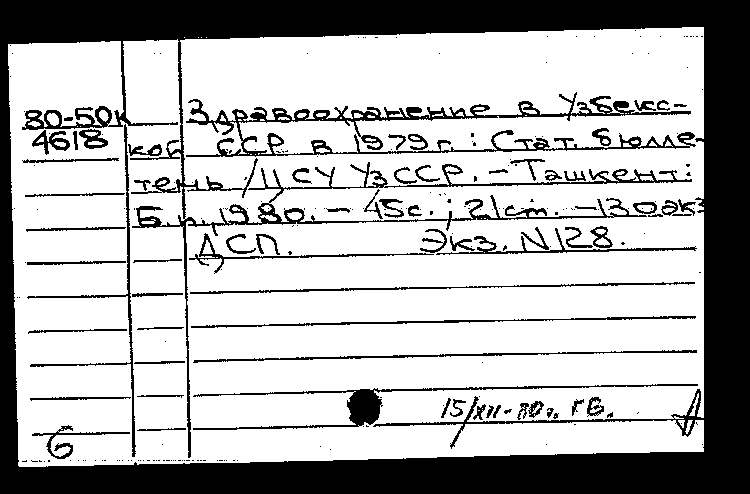 80-50к Здравоохранение в Узбекс-
4618 кой ССР в 1979г. : Стат. бюлле-
тень / ЦСУ УзССР. - Ташкент:
Б.и., 1980. - 45с.; 21 см. - 130экз
ДСП. Экз. N128.
15/XII-80г. ГБ.
6